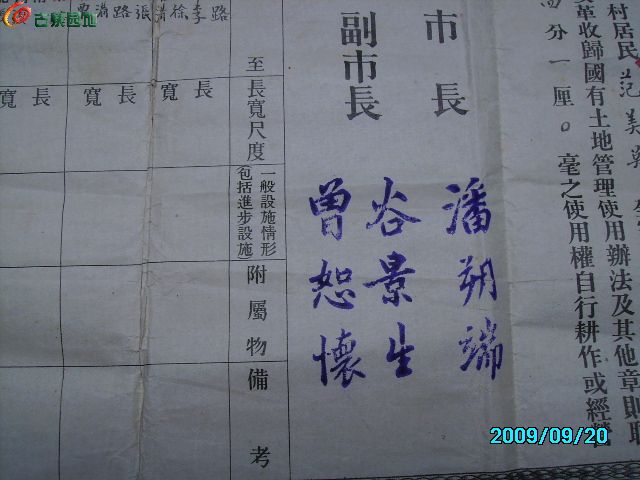 村居民范美
革收歸國有土地管理使用辦法及其他章則取
分一厘〇毫之使用權自行耕作或經營
市長
潘朔端
副市長
谷景生
曾恕懷
至
長寬尺度
一般設施情形
(包括進步設施)
附屬物
備考
長
寬
長
寬
長
寬
路
李
徐
清
張
路
滿
2009/09/20